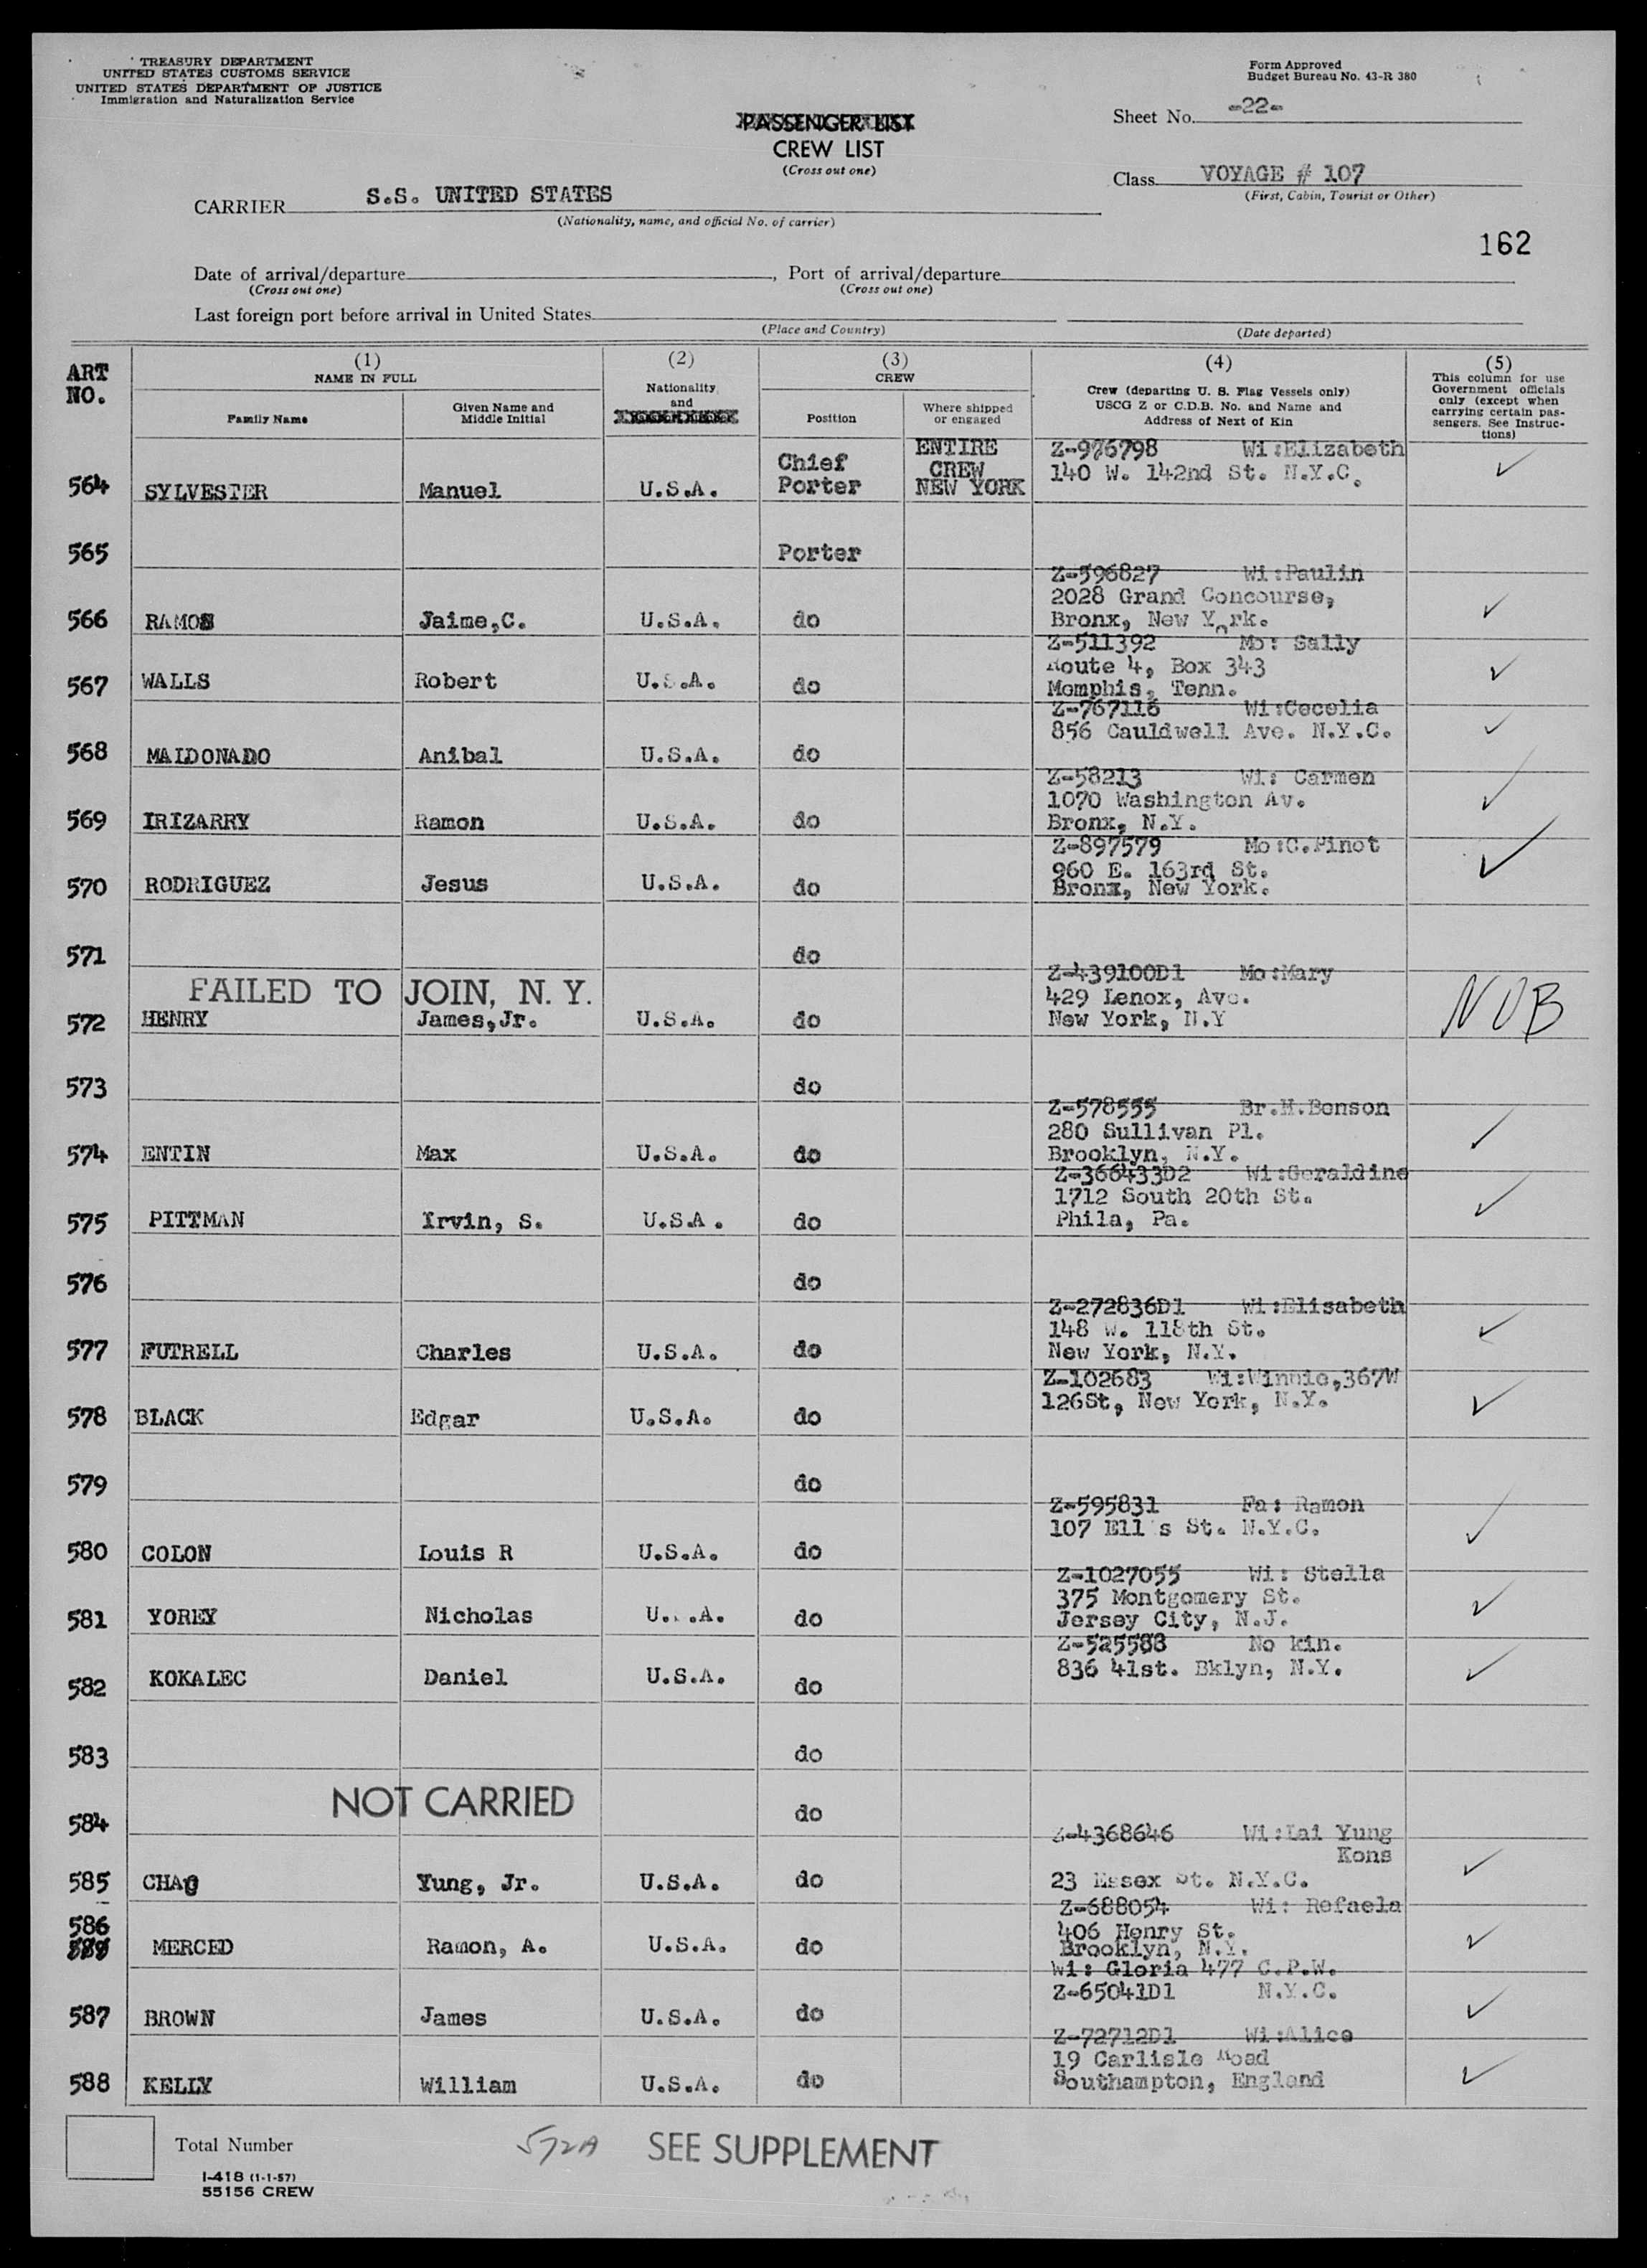 TREASURY DEPARTMENT
UNITED STATES CUSTOMS SERVICE
UNITED STATES DEPARTMENT OF JUSTICE
Immigration and Naturalization Service
Form Approved
Budget Bureau No. 43-R 380
Sheet No. -22-
PASSENGER LIST
CREW LIST
(Cross out one)
Class VOYAGE # 107
(First, Cabin, Tourist or Other)
CARRIER S.S. UNITED STATES
(Nationality, name, and official No. of carrier)
162
Date of arrival/departure , Port of arrival/departure
(Cross out one) (Cross out one)
Last foreign port before arrival in United States
(Place and Country) (Date departed)
ART NO.
(1) NAME IN FULL
Family Name
Given Name and Middle Initial
(2) Nationality and
(3) CREW
Position
Where shipped or engaged
(4)
Crew (departing U. S. Flag Vessels only)
USCG Z or C.D.B. No. and Name and
Address of Next of Kin
(5)
This column for use
Government officials
only (except when
carrying certain pas-
sengers. See Instruc-
tions)
564 SYLVESTER Manuel U.S.A. Chief Porter ENTIRE CREW NEW YORK Z-976798 Wi:Elizabeth
140 W. 142nd St. N.Y.C.
565 Porter
566 RAMOS Jaime,C. U.S.A. do Z-596827 Wi:Paulin
2028 Grand Concourse,
Bronx, New York.
567 WALLS Robert U.S.A. do Z-511392 Mo: Sally
Route 4, Box 343
Momphis, Tenn.
568 MALDONADO Anibal U.S.A. do Z-767116 Wi:Cecelia
856 Cauldwell Ave. N.Y.C.
569 IRIZARRY Ramon U.S.A. do Z-58213 Wi: Carmen
1070 Washington Av.
Bronx, N.Y.
570 RODRIGUEZ Jesus U.S.A. do Z-897579 Mo:C.Pinot
960 E. 163rd St.
Bronx, New York.
571 do
FAILED TO JOIN, N. Y.
572 HENRY James,Jr. U.S.A. do Z-439100D1 Mo:Mary
429 Lenox, Ave.
New York, N.Y
NOB
573 do
574 ENTIN Max U.S.A. do Z-578555 Br.H.Benson
280 Sullivan Pl.
Brooklyn, N.Y.
575 PITTMAN Irvin, S. U.S.A. do Z-366433D2 Wi:Geraldine
1712 South 20th St.
Phila, Pa.
576 do
577 FUTRELL Charles U.S.A. do Z-272836D1 Wi:Elisabeth
148 W. 118th St.
New York, N.Y.
578 BLACK Edgar U.S.A. do Z-102683 Wi:Winnie,367W
126St, New York, N.Y.
579 do
580 COLON Louis R U.S.A. do Z-595831 Fa: Ramon
107 Ell s St. N.Y.C.
581 YOREY Nicholas U. .A. do Z-1027055 Wi: Stella
375 Montgomery St.
Jersey City, N.J.
582 KOKALEC Daniel U.S.A. do Z-525588 No kin.
836 41st. Bklyn, N.Y.
583 do
NOT CARRIED
584 do
585 CHAO Yung, Jr. U.S.A. do Z-4368646 Wi:Lai Yung
Kons
23 Essex St. N.Y.C.
586 MERCED Ramon, A. U.S.A. do Z-688054 Wi: Refaela
406 Henry St.
Brooklyn, N.Y.
587 BROWN James U.S.A. do Wi: Gloria 477 C.P.W.
Z-65041D1 N.Y.C.
588 KELLY William U.S.A. do Z-72712D1 Wi:Alice
19 Carlisle Road
Southampton, England
Total Number
572A SEE SUPPLEMENT
I-418 (1-1-57)
55156 CREW